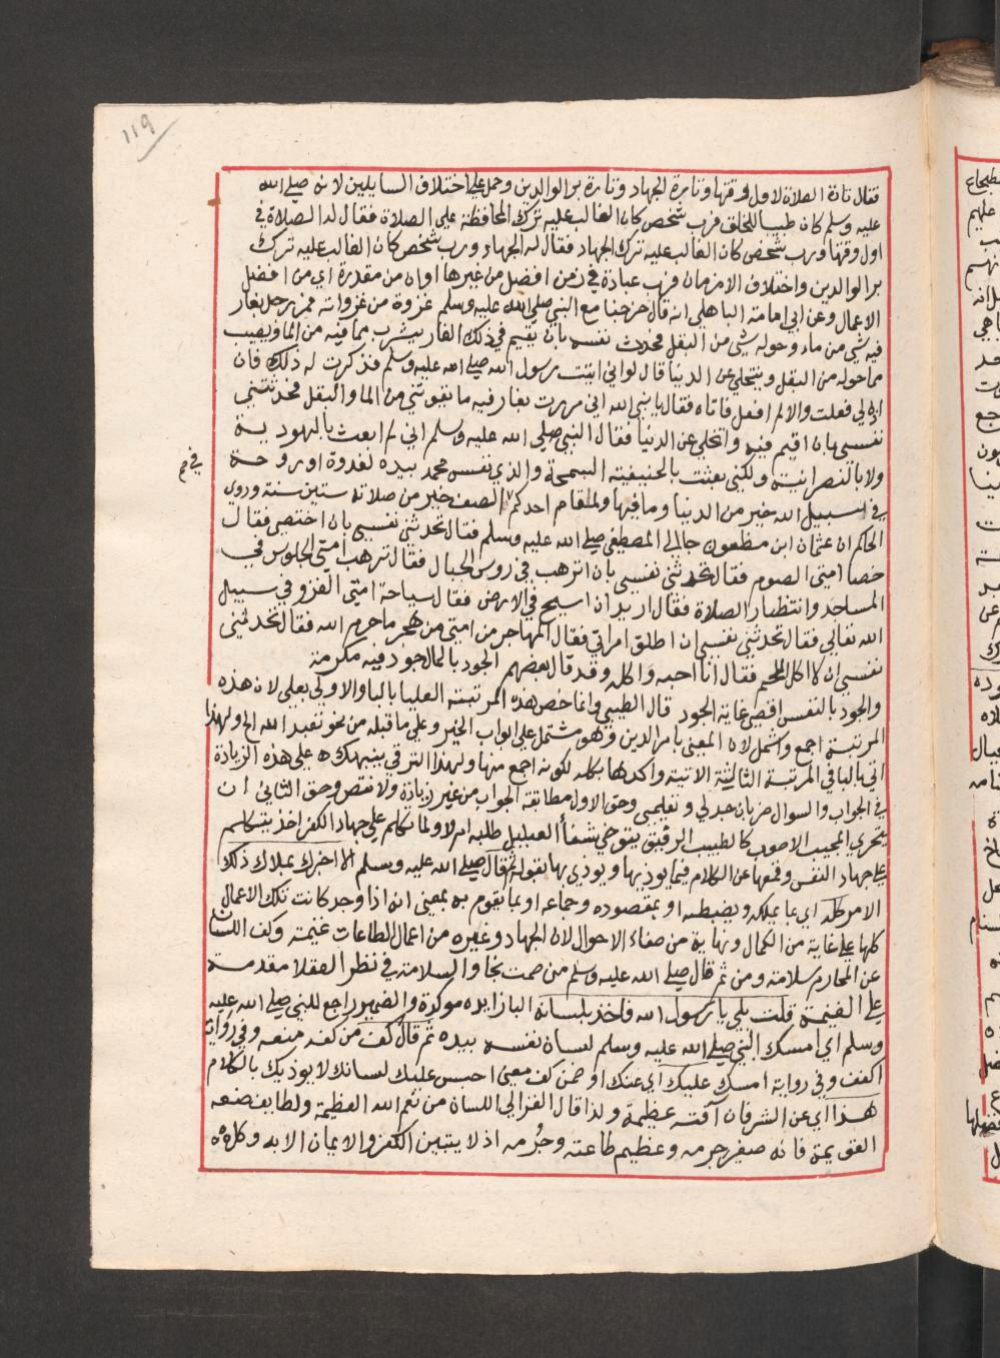 ١١٩
فقال تارة الصلاة لاول وقتها وتارة الجهاد وتارة بر الوالدين وحمل على اختلاف السايلين لانه صلى الله
عليه وسلم كان طبيبا للخلق فرب شخص كان الغالب عليه ترك المحافظة على الصلاة فقال له الصلاة في
اول وقتها ورب شخص كان الغالب عليه ترك الجهاد فقال له الجهاد ورب شخص كان الغالب عليه ترك
بر الوالدين واختلاف الازمان فرب عبادة في زمن افضل من غيرها او ان من مقدرة اي من افضل
الاعمال وعن ابي امامة الباهلي انه قال خرجنا مع النبي صلى الله عليه وسلم غزوة من غزواته فمر رجل بغار
فيه شي من ماء وحوله شي من البقل فحدث نفسه بان يقيم في ذلك الغار يشرب مما فيه من الما ويصيب
مما حوله من البقل ويتخلي عن الدنيا قال لو اني اتيت رسول الله صلى الله عليه وسلم فذكرت له ذلك فان
اذن لي فعلت والا لم افعل فاتاه فقال يا نبي الله اني مررت بغار فيه ما يقوتني من الما والبقل فحدثتني
نفسي بان اقيم فيه واتخلي عن الدنيا فقال النبي صلى الله عليه وسلم اني لم ابعث باليهودية
ولا بالنصرانية ولكني بعثت بالحنيفية السمحة والذي نفس محمد بيده لغدوة او روحة
في سبيل الله خير من الدنيا وما فيها ولمقام احدكم الصف خير من صلاته ستين سنة وروي
في صح
الحاكم ان عثمان ابن مظعون جا الي المصطفى صلى الله عليه وسلم فقال تحدثني نفسي بان اختصي فقال
خصا امتي الصوم فقال تحدثني نفسي بان اترهب في روس الجبال فقال ترهب امتي الجلوس في
المساجد وانتظار الصلاة فقال اريد ان اسيح في الارض فقال سياحة امتي الغزو في سبيل
الله تعالي فقال تحدثني نفسي ان اطلق امراتي فقال المهاجر من امتي من هجر ما حرم الله فقال تحدثني
نفسي ان لا اكل اللحم فقال انا احبه واكله وقد قال بعضهم الجود بالمال جود فيه مكرمة
والجود بالنفس اقصى غاية الجود قال الطيبي وانما خص هذه المرتبة العليا بالبا والاولي بعلي لان هذه
المرتبة اجمع واشمل لان المعني بامر الدين وهو مشتمل على ابواب الخير وعلي ما قبله من نحو تعبد الله الخ ولهذا
اتي بالبا في المرتبة الثالثة الاتية واكدها بكله لكونه اجمع منها ولهذا الترقي ينبهك على هذه الزيادة
في الجواب والسوال ضربان جدلي وتعليمي وحق الاول مطابقة الجواب من غير زيادة ولا نقص وحق الثاني ان
يتحري المجيب الاصوب كالطبيب الرفيق يتوخي شفأ العليل طلبه ام لا ولما تكلم علي جهاد الكفر اخذ يتكلم
علي جهاد النفس وقمعها عن الكلام فيما يوذيها ويوذي بها بقوله ثم قال صلى الله عليه وسلم الا اخبرك بملاك ذلك
الامر كله اي بما يملكه ويضبطه او بمقصوده وجماعه او بما يقوم به بمعني انه اذا وجد كانت تلك الاعمال
كلها على غاية من الكمال ونهاية من صفاء الاحوال لان الجهاد وغيره من اعمال الطاعات غنيمة وكف اللسان
عن المحارم سلامة ومن ثم قال صلى الله عليه وسلم من صمت نجا والسلامة في نظر العقلا مقدمة
على الغنيمة قلت بلي يا رسول الله فاخذ بلسانه البا زايده موكدة والضمير راجع للنبي صلى الله عليه
وسلم اي امسك النبي صلى الله عليه وسلم لسان نفسه بيده ثم قال كف من كفه منعه وفي رواية
اكفف وفي رواية امسك عليك اي عنك او ضمن كف معنى احبس عليك لسانك لا يوذيك بالكلام
هذا اي عن الشر فان آفته عظيمة ولذا قال الغزالي اللسان من نعم الله العظيمة ولطايف صنعه
القويمة فانه صغير جرمه وعظيم طاعته وجُرمه اذ لا يتبين الكفر والايمان الا به وكل